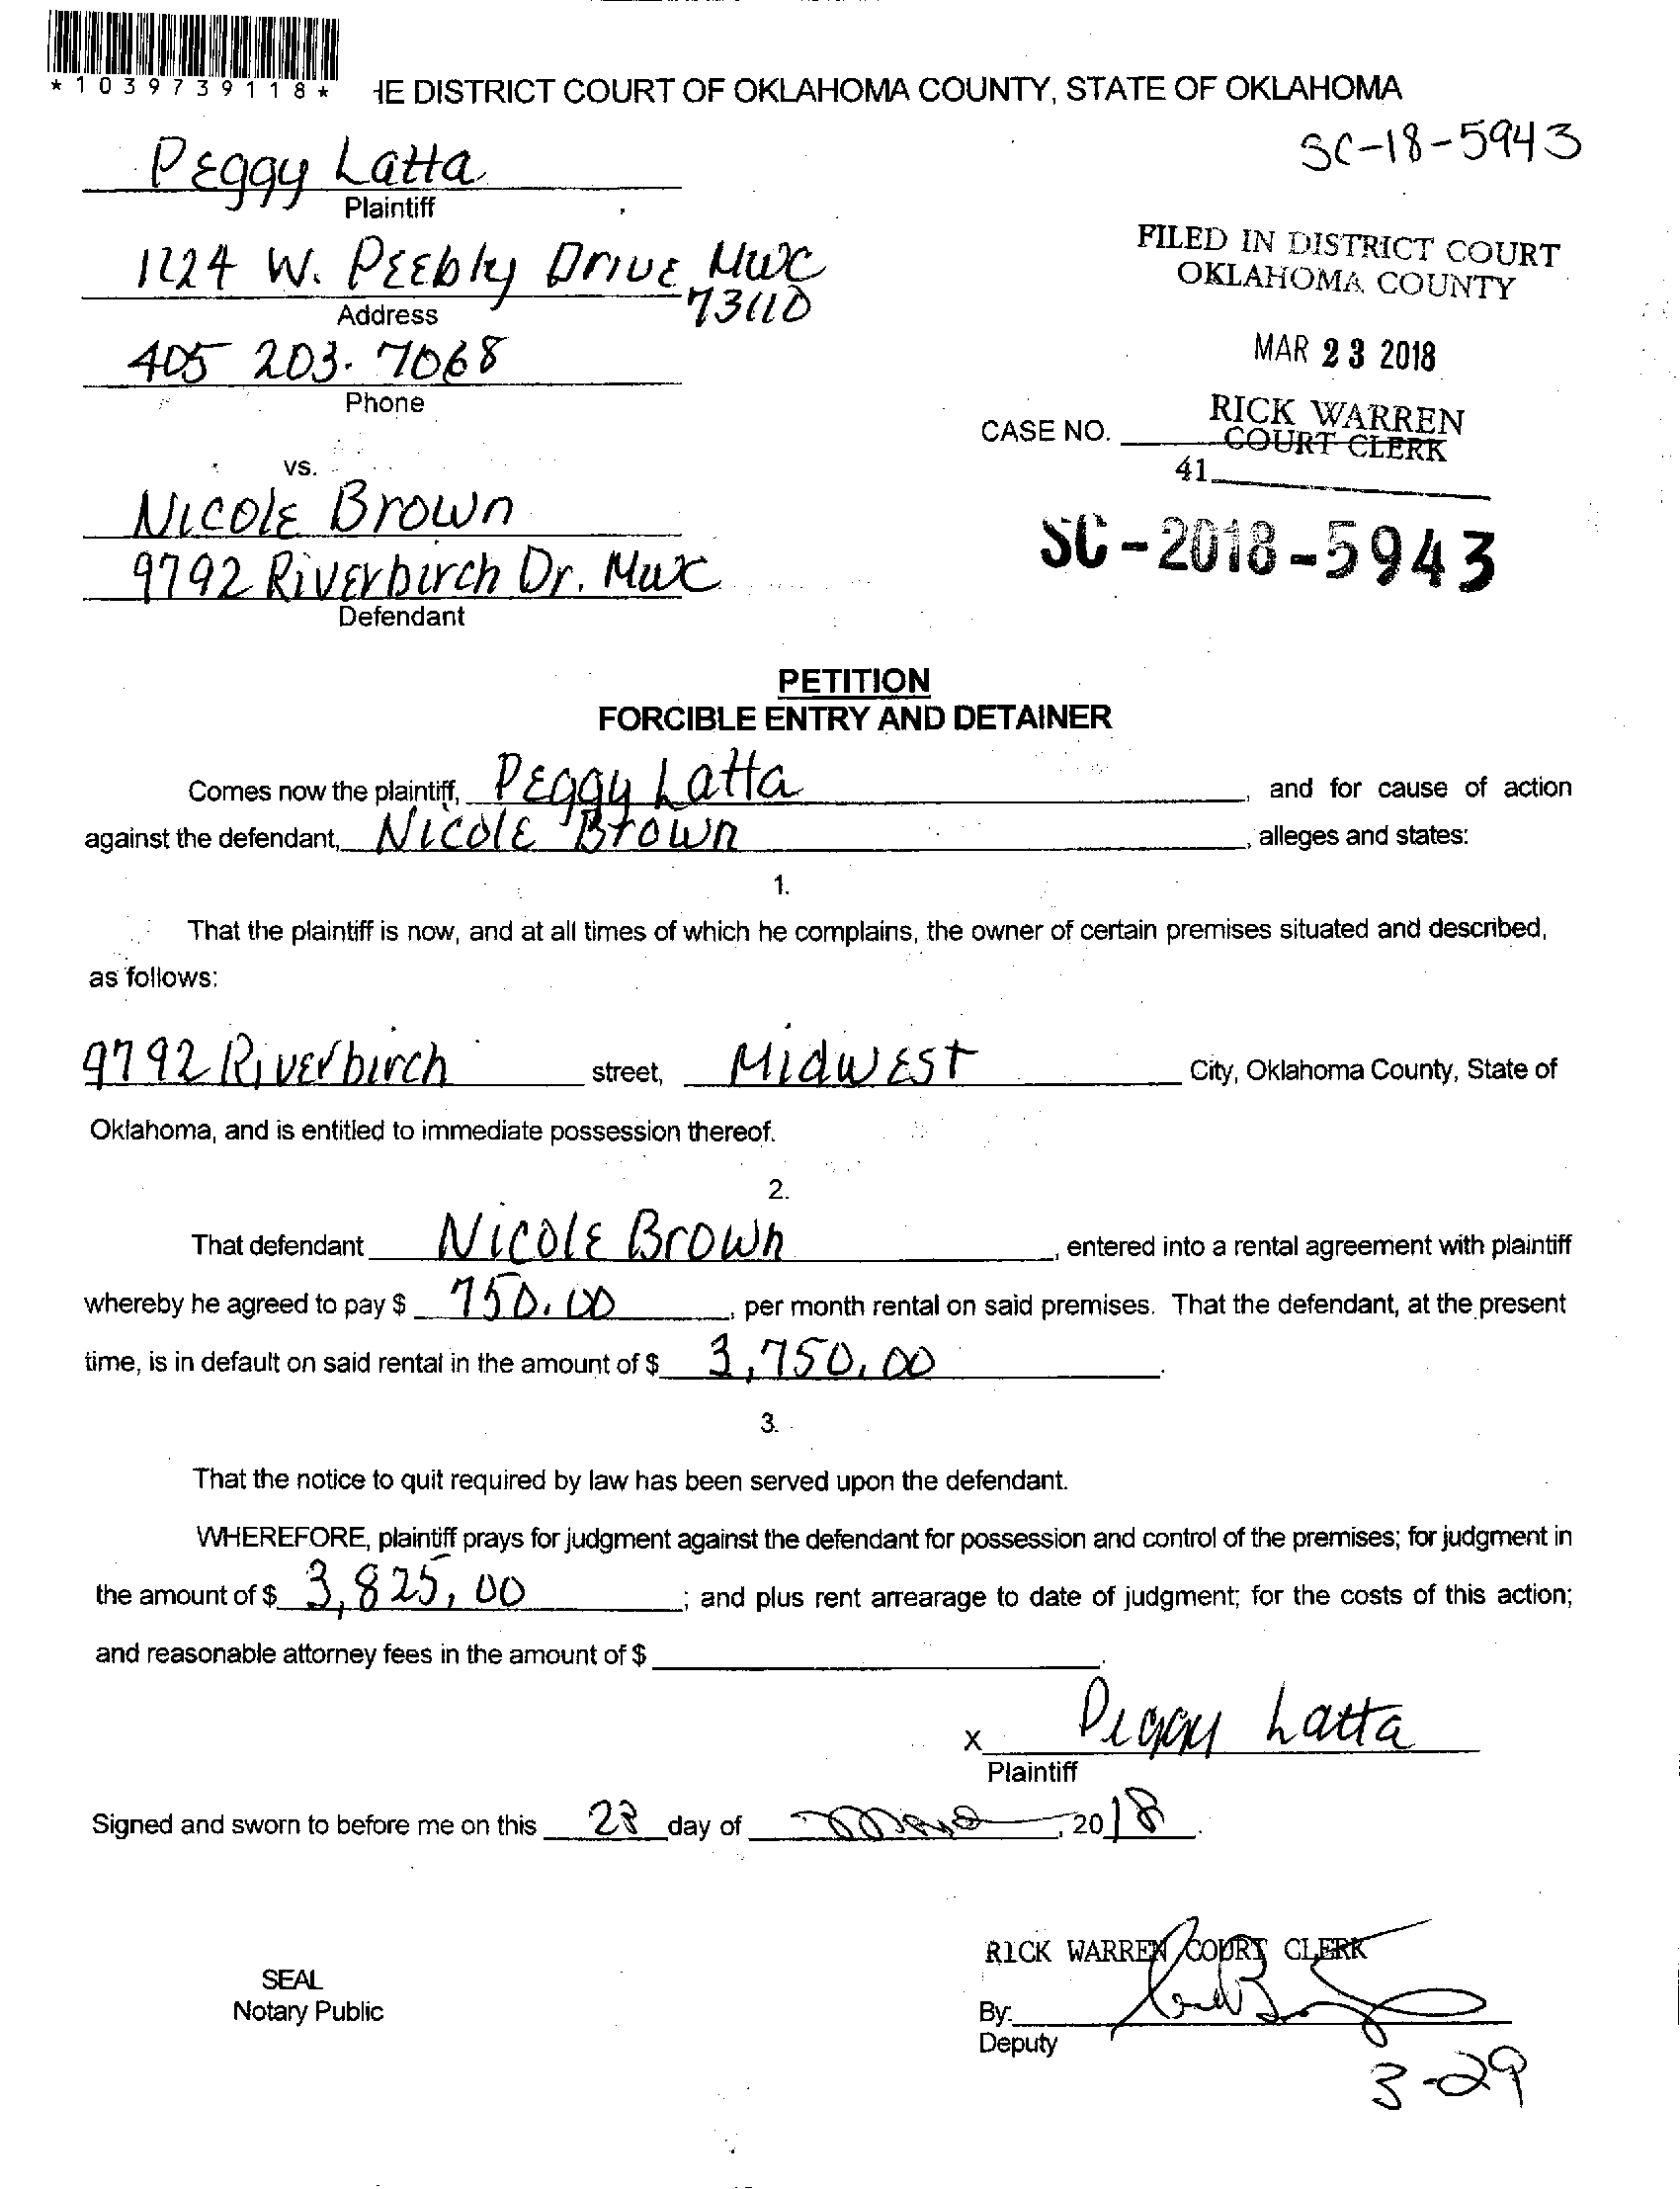 *1039739118*
HE DISTRICT COURT OF OKLAHOMA COUNTY, STATE OF OKLAHOMA
SC-18-5943
Peggy Latta
Plaintiff
1224 W. Peebly Drive MWC
73110
Address
405 203-7068
Phone
FILED IN DISTRICT COURT
OKLAHOMA COUNTY
MAR 23 2018
RICK WARREN
COURT CLERK
CASE NO.
41
vs.
Nicole Brown
9792 Riverbirch Dr. MWC
Defendant
SC-2018-5943
PETITION
FORCIBLE ENTRY AND DETAINER
Comes now the plaintiff, Peggy Latta, and for cause of action
against the defendant, Nicole Brown, alleges and states:
1.
That the plaintiff is now, and at all times of which he complains, the owner of certain premises situated and described,
as follows:
9792 Riverbirch street, Midwest City, Oklahoma County, State of
Oklahoma, and is entitled to immediate possession thereof.
2.
That defendant Nicole Brown, entered into a rental agreement with plaintiff
whereby he agreed to pay $ 750.00, per month rental on said premises. That the defendant, at the present
time, is in default on said rental in the amount of $ 3,750.00.
3.
That the notice to quit required by law has been served upon the defendant.
WHEREFORE, plaintiff prays for judgment against the defendant for possession and control of the premises; for judgment in
the amount of $ 3,825.00; and plus rent arrearage to date of judgment; for the costs of this action;
and reasonable attorney fees in the amount of $.
x Peggy Latta
Plaintiff
Signed and sworn to before me on this 23 day of March, 2018.
RICK WARREN COURT CLERK
SEAL
Notary Public
By:
Deputy
3-29